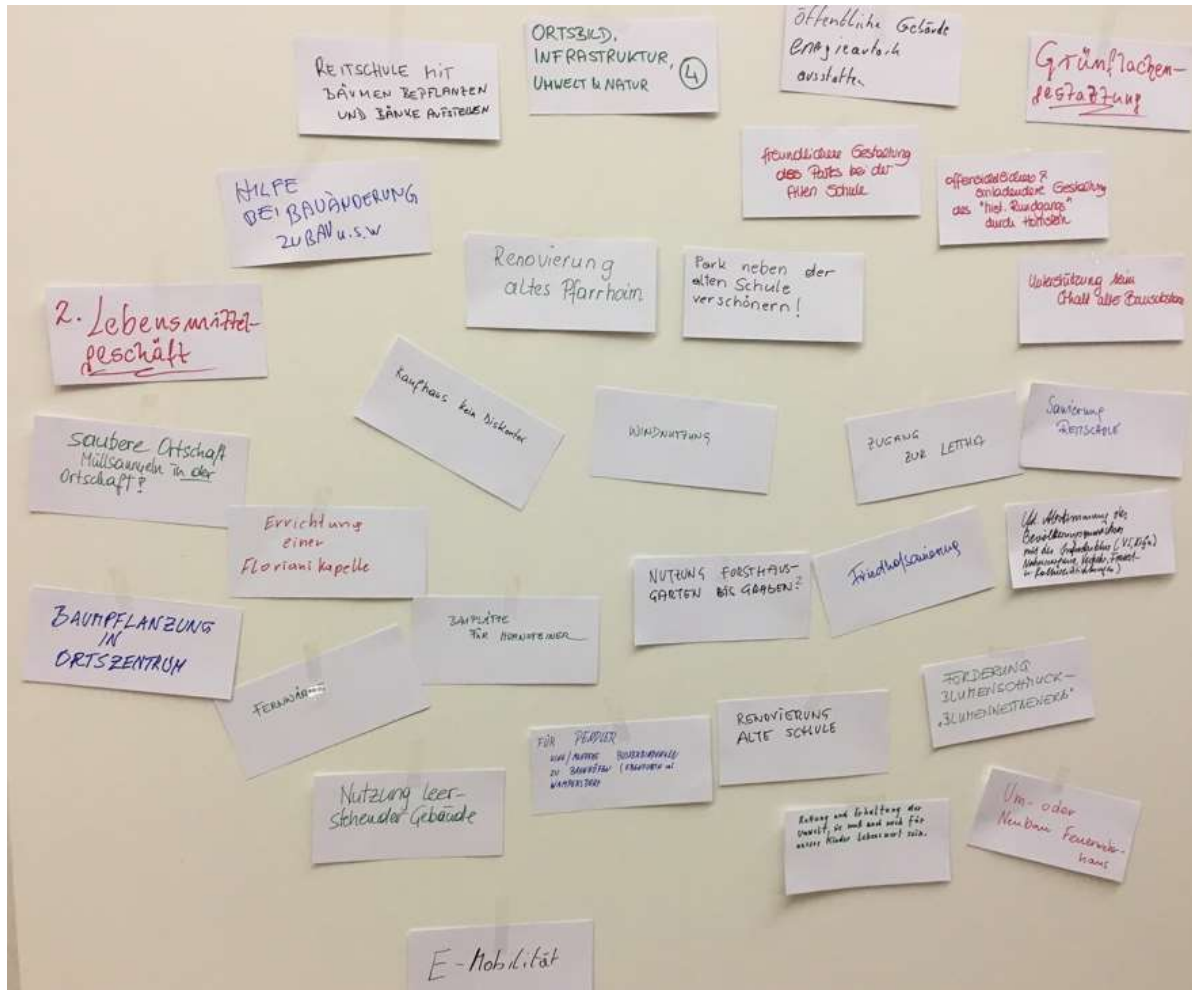 ORTSBILD,
INFRASTRUKTUR,
UMWELT & NATUR
4
REITSCHULE MIT
BÄUMEN BEPFLANZEN
UND BÄNKE AUFSTELLEN
öffentliche Gebäude
energieautark
ausstatten
Grünflächen-
gestaltung
HILFE
BEI BAUÄNDERUNG
ZUBAU u.s.w
freundlichere Gestaltung
des Parks bei der
Alten Schule
einladendere Gestaltung
des "hist. Rundgangs"
durch Hornstein
Renovierung
altes Pfarrheim
Park neben der
alten Schule
verschönern!
Unterstützung beim
Erhalt alter Bausubstanz
2. Lebensmittel-
geschäft
Kaufhaus kein Diskonter
WINDNUTZUNG
ZUGANG
ZUR LEITHA
Sanierung
REITSCHULE
saubere Ortschaft
Müllsammeln in der
Ortschaft?
Errichtung
einer
Florianikapelle
NUTZUNG FORSTHAUS-
GARTEN BIS GRABEN?
Friedhofsanierung
Abstimmung der
BAUMPFLANZUNG
IN
ORTSZENTRUM
FERNWÄRME
BAUPLÄTZE
FÜR HORNSTEINER
FÖRDERUNG
BLUMENSCHMUCK-
FÜR PENDLER
ZU BAHNHÖFEN
RENOVIERUNG
ALTE SCHULE
Nutzung leer-
stehender Gebäude
Rettung und Erhaltung der
Umwelt, sie muß auch noch für
unsere Kinder lebenswert sein.
Um- oder
Neubau Feuerwehr-
haus
E-Mobilität